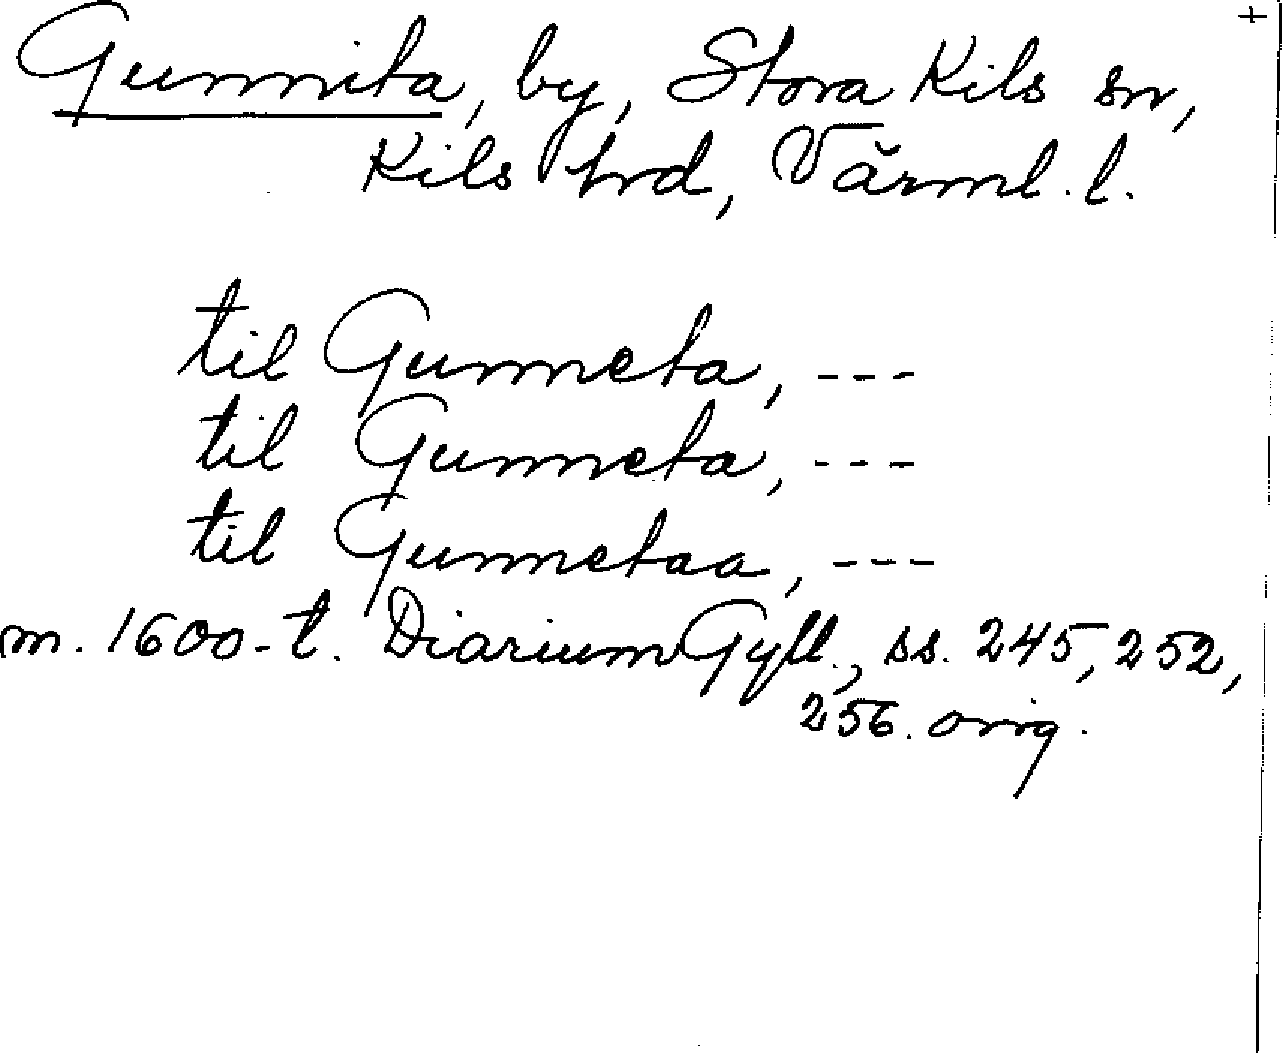 Gunnita, by, Stora Kils sn,
Kils hrd, Värml. l.
til Gunneta, ---
til Gunneta, ---
til Gunnetaa, ---
m. 1600-t. Diarium Gyll., ss. 245, 252,
256. orig.